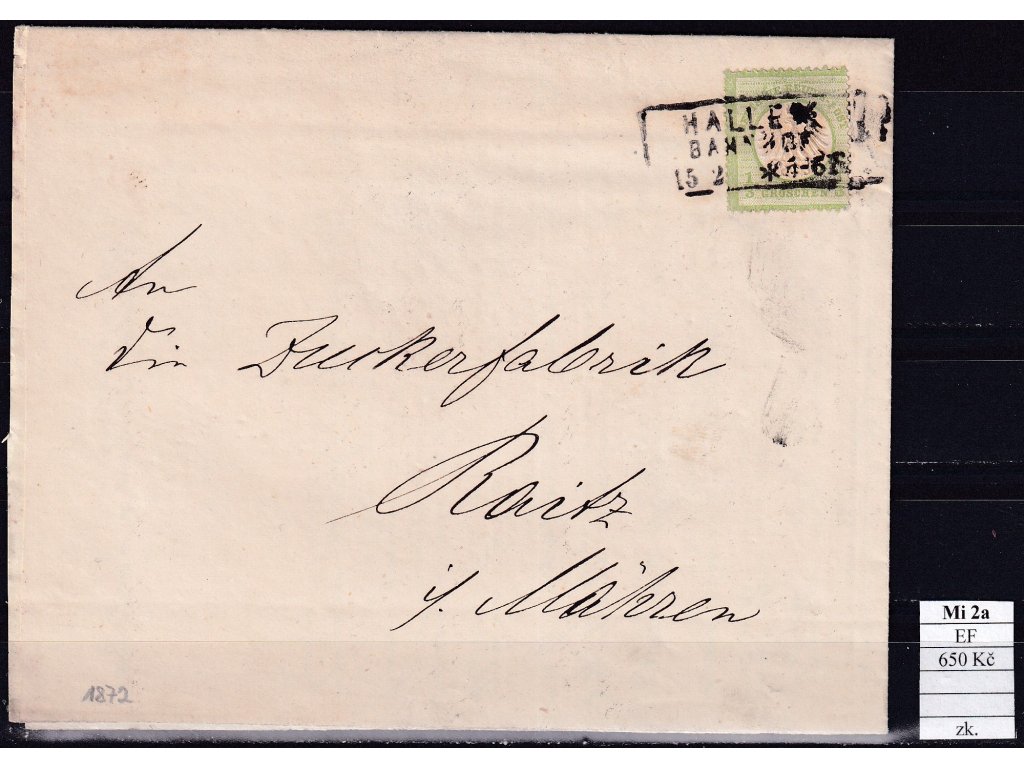 HALLE
BAHNHOF
15 2 * 5-6
1/3 GROSCHEN
An
die Zuckerfabrik
Raitz
i/. Mähren
1872
Mi 2a
EF
650 Kč
zk.